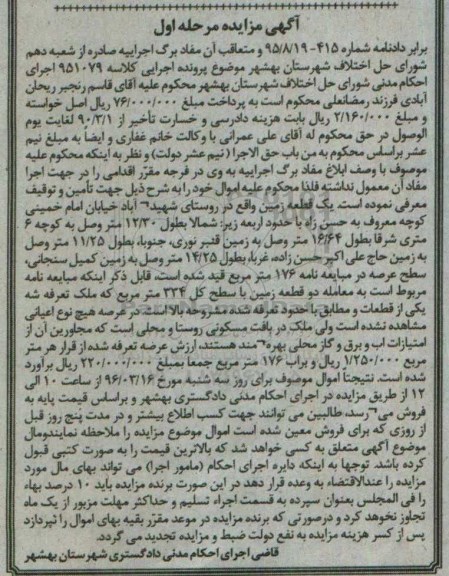 آگهی مزایده مرحله اول
برابر دادنامه شماره ۴۱۵-۹۵/۸/۱۹ و متعاقب آن مفاد برگ اجراییه صادره از شعبه دهم
شورای حل اختلاف شهرستان بهشهر موضوع پرونده اجرایی کلاسه ۹۵۱۰۷۹ اجرای
احکام مدنی شورای حل اختلاف شهرستان بهشهر محکوم علیه آقای قاسم رنجبر ریحان
آبادی فرزند رمضانعلی محکوم است به پرداخت مبلغ ۷۶/۰۰۰/۰۰۰ ریال اصل خواسته
و مبلغ ۲/۱۶۰/۰۰۰ ریال بابت هزینه دادرسی و خسارت تأخیر از ۹۰/۳/۱ لغایت یوم
الوصول در حق محکوم له آقای علی عمرانی با وکالت خانم غفاری و ایضاً به مبلغ نیم
عشر براساس محکوم به من باب حق الاجرا (نیم عشر دولت) و نظر به اینکه محکوم علیه
موصوف با وصف ابلاغ مفاد برگ اجراییه به وی در فرجه مقرّر اقدامی را در جهت اجرا
مفاد آن معمول نداشته فلذا محکوم علیه اموال خود را به شرح ذیل جهت تأمین و توقیف
معرفی نموده است. یک قطعه زمین واقع در روستای شهید¬آباد خیابان امام خمینی
کوچه معروف به حسن زاده با حدود اربعه زیر: شمالا بطول ۱۲/۳۰ متر وصل به کوچه ۶
متری شرقا بطول ۱۶/۶۴ متر وصل به زمین قنبر نوری، جنوبا، بطول ۱۱/۲۵ متر وصل
به زمین حاج علی اکبر حسن زاده، غربا، بطول ۱۴/۲۵ متر وصل به زمین کمیل سنجانی،
سطح عرصه در مبایعه نامه ۱۷۶ متر مربع قید شده است، قابل ذکر اینکه مبایعه نامه
مربوط است به معامله دو قطعه زمین با سطح کل ۳۳۴ متر مربع که ملک تعرفه شه
یکی از قطعات و مطابق با حدود تعرفه شده مشروحه بالا است در عرصه هیچ نوع اعیانی
مشاهده نشده است ولی ملک در بافت مسکونی روستا و محلی است که مجاورین آن از
امتیازات اب و برق و گاز محلی بهره¬مند هستند، ارزش عرصه تعرفه شده از قرار هر متر
مربع ۱/۲۵۰/۰۰۰ ریال و براب ۱۷۶ متر مربع جمعاً بمبلغ ۲۲۰/۰۰۰/۰۰۰ ریال برآورد
شده است. نتیجتاً اموال موصوف برای روز سه شنبه مورخ ۹۶/۰۳/۱۶ از ساعت ۱۰ الی
۱۲ از طریق مزایده در اجرای احکام مدنی دادگستری بهشهر و براساس قیمت پایه به
فروش می¬رسد، طالبین می توانند جهت کسب اطلاع بیشتر و در مدت پنج روز قبل
از روزی که برای فروش معین شده است اموال موضوع مزایده را ملاحظه نمایندومال
موضوع آگهی متعلق به کسی خواهد شد که بالاترین قیمت را به صورت کتبی قبول
کرده باشد. توجها به اینکه دایره اجرای احکام (مامور اجرا) می تواند بهای مال مورد
مزایده را عندالاقتضاء به وعده قرار دهد در این صورت برنده مزایده باید ۱۰ درصد بهاء
را فی المجلس بعنوان سپرده به قسمت اجراء تسلیم و حداکثر مهلت مزبور از یک ماه
تجاوز نخوهد کرد و درصورتی که برنده مزایده در موعد مقرّر بقیه بهای اموال را نپردازد
پس از کسر هزینه مزایده به نفع دولت ضبط و مزایده تجدید می گردد.
قاضی اجرای احکام مدنی دادگستری شهرستان بهشهر